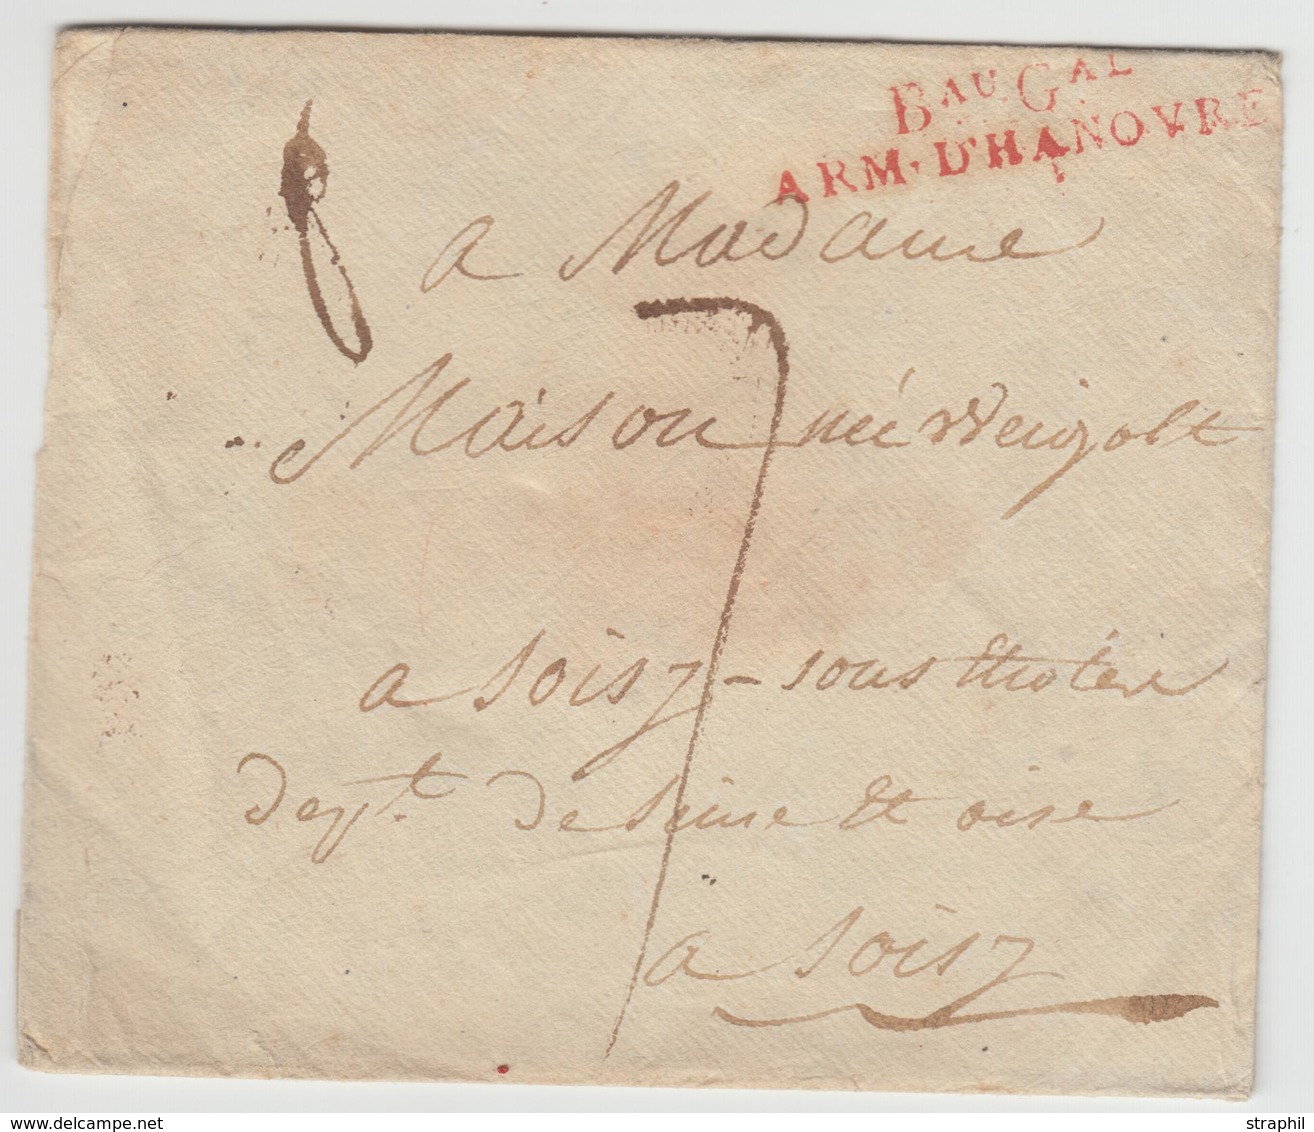 BAU GAL
ARM. D'HANOVRE
a Madame
7
Maison née Weigolt
a Soisy - sous
Dept. De Seine et oise
a Soisy
delcampe.net
straphil